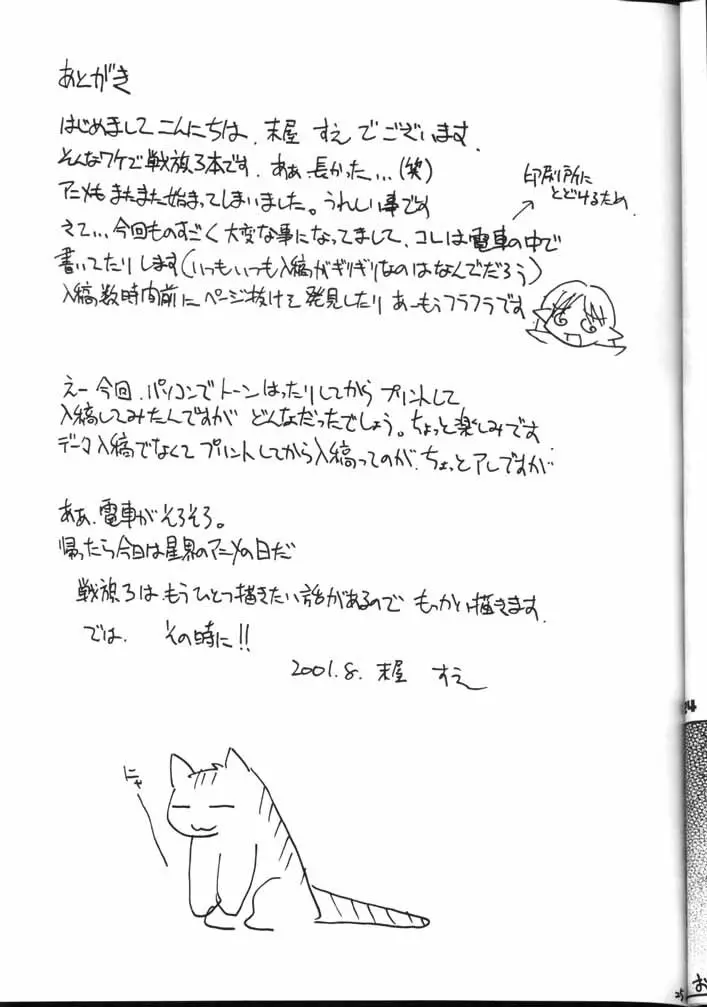 あとがき
はじめまして こんにちは、末屋 すえ でございます.
そんなワケで戦旗3本です. あぁ 長かった...(笑)
アニメも またまた始まってしまいました。うれしい事です
さて... 今回ものすごく 大変な事になってまして、コレは電車の中で
書いてたりします(いつもいつも入稿がギリギリなのはなんでだろう)
入稿数時間前に ページ抜けを発見したり あーもぅフラフラです
印刷所に
とどけるため.
えー 今回、パソコンで トーン はったりしてから プリントして
入稿してみたんですが どんなだったでしょう。ちょっと楽しみです
データ入稿でなくて プリントしてから入稿ってのが、ちょっとアレですが
あぁ、電車がそろそろ。
帰ったら今日は星界のアニメの日だ
戦旗3は もうひとつ描きたい話があるので もっかい描きます.
では、 その時に!!
2001.8. 末屋 すえ
にゃ
24
25